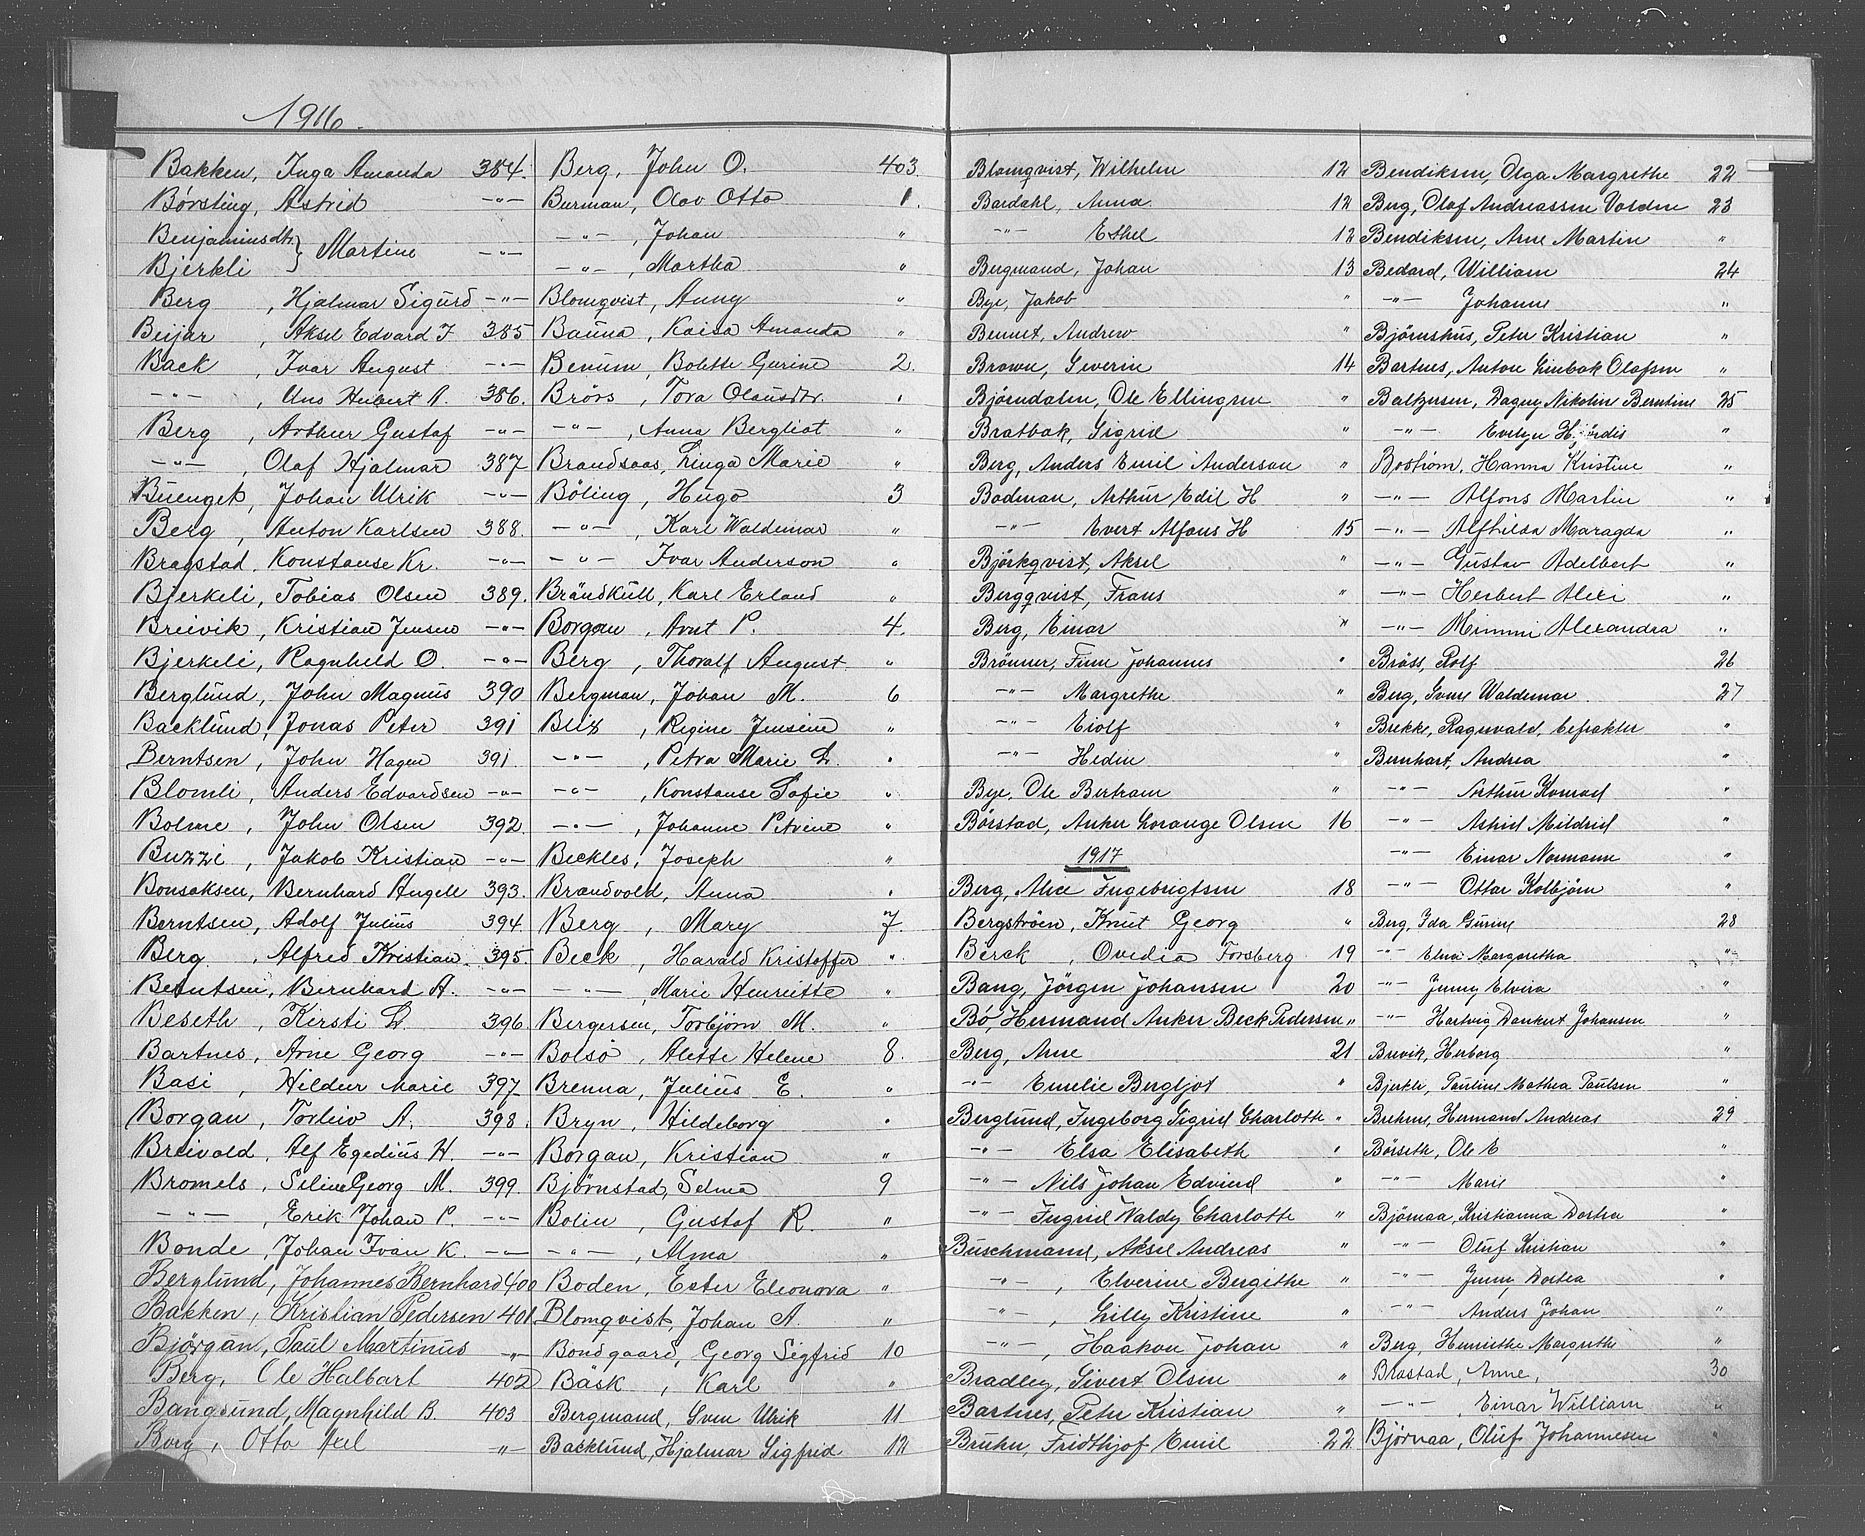 1916.
Bakken, Inga Amanda 384.
Børsting, Astrid -"-
Benjaminsdtr. } Martine -"-
Bjerkli
Berg, Hjalmar Sigurd -"-
Beijar, Aksel Edvard J. 385
Back, Ivar August -"-
-"-, Uns Hubert A. 386.
Berg, Arthur Gustaf -"-
-"-, Olaf Hjalmar 387
Buengek, Johan Ulrik -"-
Berg, Anton Karlsen 388.
Bragstad, Konstanse Kr. -"-
Bjerkeli, Tobias Olsen 389.
Breivik, Kristian Jensen -"-
Bjerkeli, Ragnhild O. -"-
Berglund, John Magnus 390
Backlund, Jonas Peter 391
Berntsen, John Hagen 391.
Blomli, Anders Edvardsen -"-
Bolme, John Olsen 392.
Buzzi, Jakob Kristian -"-
Bonsaksen, Bernhard Angell 393.
Berntsen, Adolf Julius 394
Berg, Alfred Kristian 395.
Berntsen, Bernhard A. -"-
Beseth, Kirsti L. 396
Bartnes, Arne Georg -"-
Basi, Hildur Marie 397
Borgan, Torleiv A. 398.
Breivold, Alf Egedius H. -"-
Bromels, Seline Georg M. 399.
-"-, Erik Johan P. -"-
Bonde, Johan Ivan K. -"-
Berglund, Johannes Bernhard 400
Bakken, Kristian Pedersen 401.
Bjørgan, Paul Martinus "
Berg, Ole Halbart 402
Bangsund, Magnhild B. 403
Borg, Otto Axel "
Berg, John O. 403.
Burman, Olov Otto 1.
-"-, Johan "
-"-, Martha "
Blomqvist, Anny "
Bauna, Kaisa Amanda "
Benum, Bolette Gurine 2.
Brørs, Tora Olausdtr. "
-"-, Anna Bergliot "
Brandsaas, Linga Marie "
Böling, Hugo 3
-"-, Karl Waldemar "
-"- Ivar Anderson "
Brändkull, Karl Erland "
Borgan, Arnt P. 4.
Berg, Thoralf August "
Bergman, Johan M. 6
Blix, Regine Jensine "
-"-, Petra Marie L. "
-"-, Konstanse Sofie "
-"-, Johanne Petrine "
Beckles, Joseph "
Brandvold, Anna "
Berg, Mary 7
Beck, Harald Kristoffer "
-"-, Marie Henriette "
Bergersen, Torbjørn M. "
Bolsö, Alette Helene 8.
Brenna, Julius E. "
Bryn, Hildeborg "
Borgan, Kristian "
Bjørnstad, Selma 9
Bolin, Gustaf R. "
-"-, Alma "
Boden, Ester Eleonora "
Blomqvist, Johan A. "
Bondgaard, Georg Sigfrid 10
Bäsk, Karl "
Bergmand, Sven Ulrik 11
Backlund, Hjalmar Sigfrid 12
Blomqvist, Wilhelm 12
Bardahl, Anna 12
-"- Ethel 12
Bergmand, Johan 13
Bye, Jakob "
Bennet, Andrew "
Brown, Severin 14
Bjørndalen, Ole Ellingsen "
Bratbak, Sigrid "
Berg, Anders Emil Anderson "
Bodman, Arthur Edil H "
-"- Evert Alfons H 15
Björkqvist, Aksel "
Bergqvist, Frans "
Berg, Einar "
Brönner, Finn Johannes "
-"- Margrethe "
-"- Eiolf "
-"- Hedin "
Bye, Ole Bertram "
Börstad, Anker Lorange Olsen 16
1917
Berg, Alice Ingebrigtsen 18
Bergströen, Knut Georg "
Berck, Ovedia Forsberg 19
Bang, Jörgen Johansen 20
Bö, Hermand Anker Beck Pedersen "
Berg, Arne 21
-"- Emelie Bergljot "
Berglund, Ingeborg Sigrid Charlotte "
-"- Elsa Elisabeth "
-"- Nils Johan Edvind "
-"- Ingrid Waldy Charlotte "
Buschmand, Aksel Andreas "
-"-, Elverine Bergithe "
-"-, Lilly Kristine "
-"-, Haakon Johan "
Bradley, Sivert Olsen "
Bartnes, Peter Kristian "
Bruhn, Fridthjof Emil 22
Bendiksen, Olga Margrethe 22
Berg, Olaf Andreassen Volden 23
Bendiksen, Arne Martin "
Bedard, William 24
-"- Johanne "
Björnshus, Peter Kristian "
Bartnes, Anton Linbak Olafsen "
Baltzersen, Dagny Nikoline Berntine 25
-"- Evelyn Hjördis "
Boström, Hanna Kristine "
-"- Alfons Martin "
-"- Alfhilda Maragda "
-"- Gustav Adelbert "
-"- Herbert Alexi "
-"- Mimmi Alexandra "
Bröss, Rolf 26
Berg, Sven Waldemar 27
Brekke, Ragnvald, befrakter "
Bernhart, Andrea "
-"- Arthur Konrad "
-"- Astrid Mildrid "
-"- Einar Normann "
-"- Ottar Kolbjörn "
Berg, Ida Gurine 28
-"- Elna Margaretha "
-"- Jenny Elvira "
-"- Hartvig Dankert Johansen "
Brevik, Herborg "
Bjerkli, Pauline Mathea Paulsen "
Brekne, Hermand Andreas 29
Börseth, Ole E "
-"- Marie "
Björnaa, Kristianna Dortea "
-"- Oluf Kristian "
-"- Jenny Dortea "
-"- Anders Johan "
Berg, Henriethe Margrethe "
Brostad, Anne, 30
-"-, Einar William "
Björnaa, Oluf Johannesen "